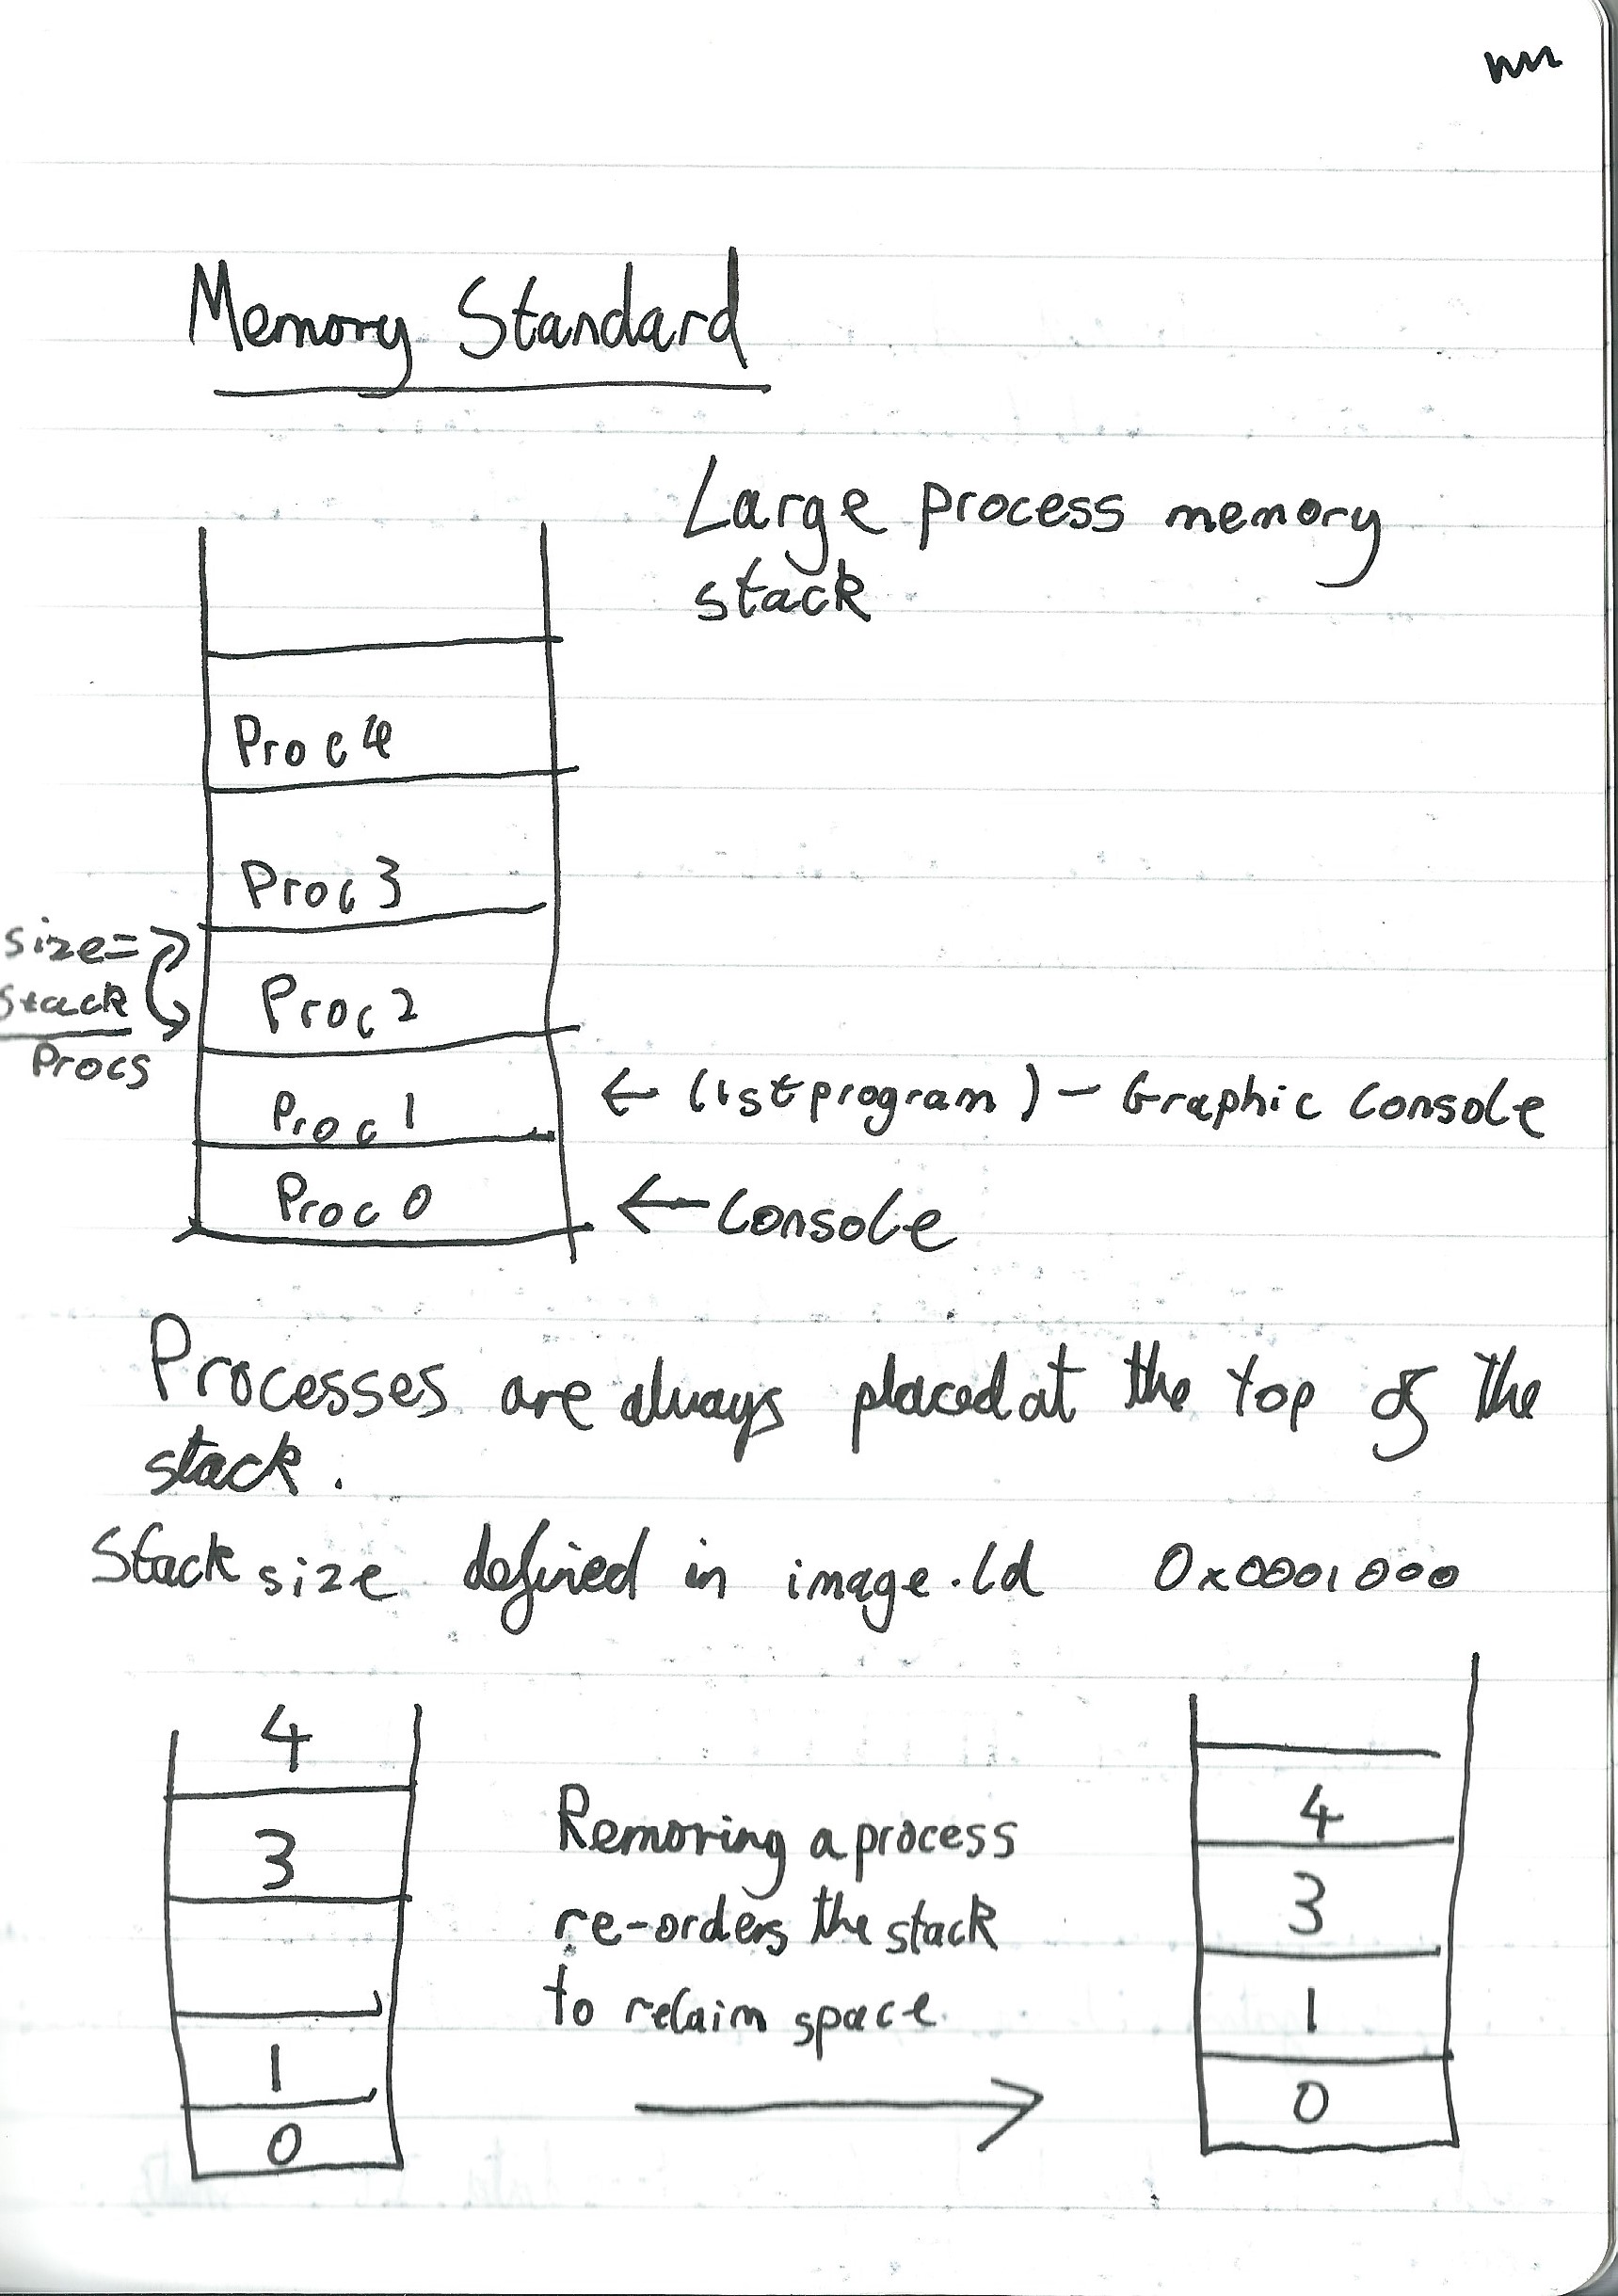 Memory Standard
Large process memory
stack
Proc 4
Proc 3
size=
stack
Procs
Proc 2
Proc 1
← (1st program) - Graphic Console
Proc 0
← Console
Processes are always placed at the top of the
stack.
Stack size defined in image.ld 0x0001000
4
3
1
0
Removing a process
re-orders the stack
to relaim space
4
3
1
0